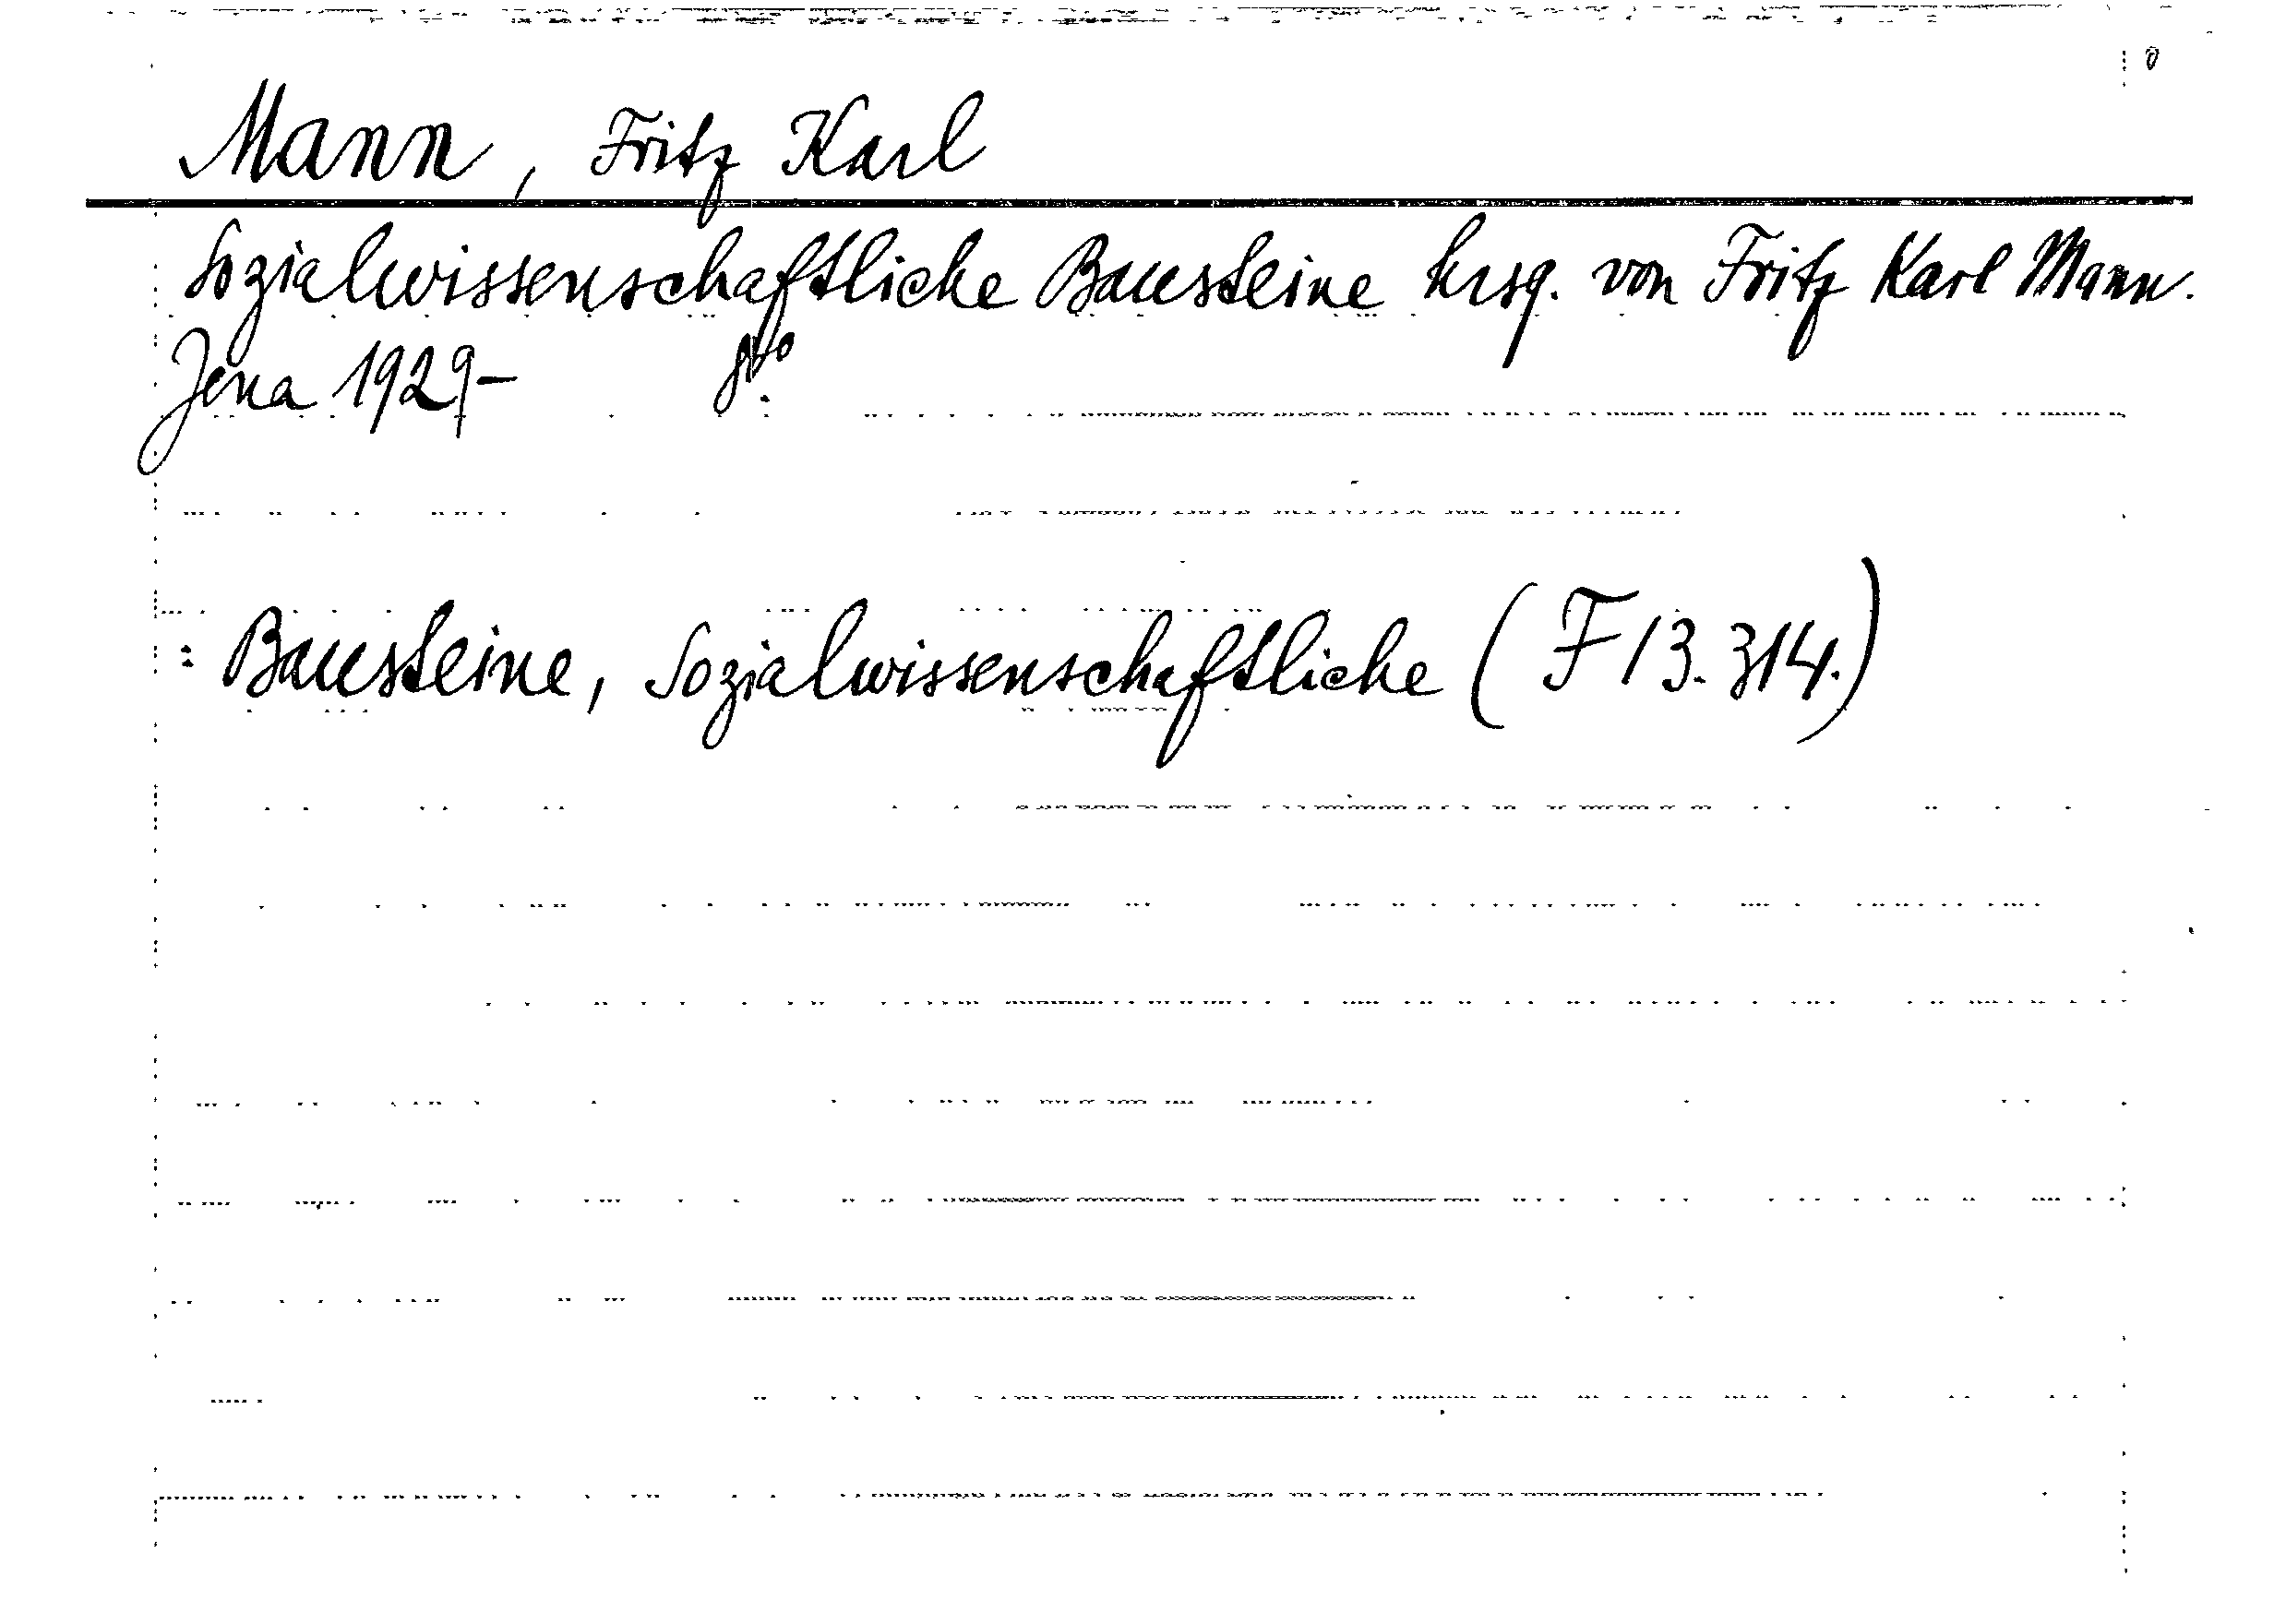 Mann, Fritz Karl
Sozialwissenschaftliche Bausteine hrsg. von Fritz Karl Mann.
Jena 1929- 8vo.
: Bausteine, Sozialwissenschaftliche (F 13. 314.)